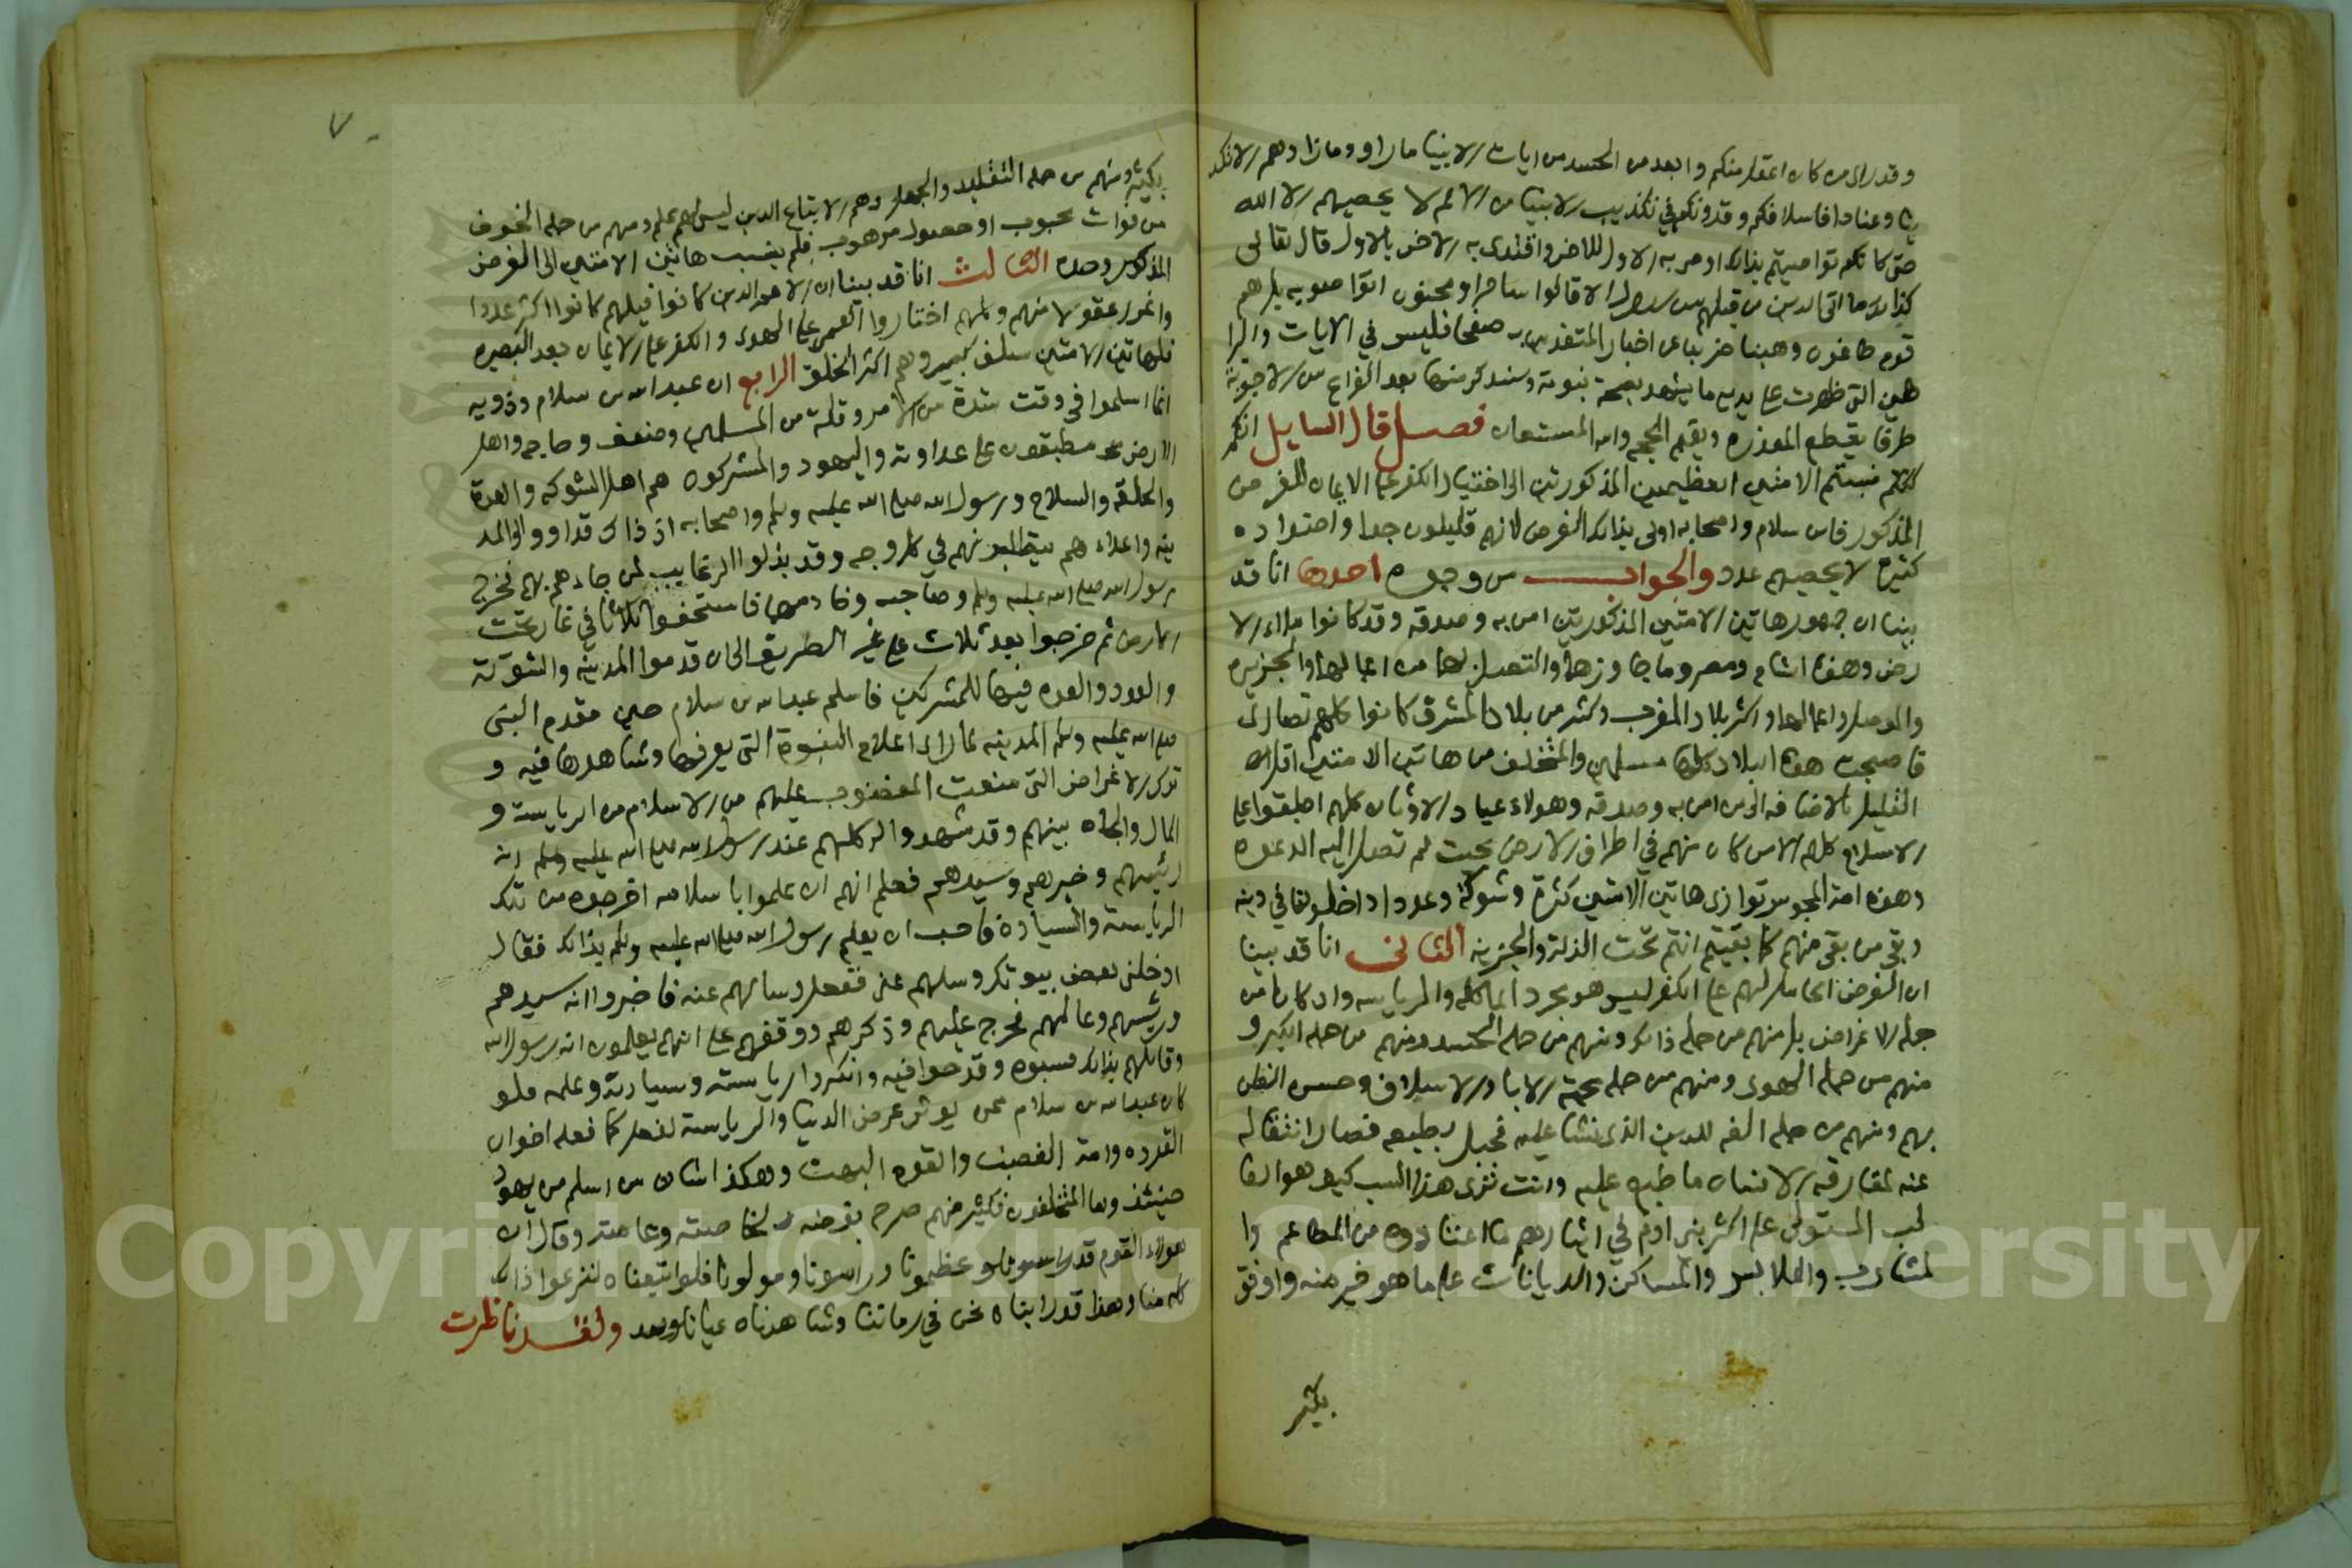 وقد راى من كان اعقل منكم وابعد من الحسد من ايات الانبيا ما راو وما زادهم الا تكذ
يبا وعنادا فاسلافكم وقدوتكم في تكذيب الانبيا من الامم لا يحصيهم الا الله
حتى كانكم تواصيتم بذلك اوصى به الاول للاخر واقتدى به الاخر بالاول قال تعالى
كذلك ما اتى الذين من قبلهم من رسول الا قالوا ساحر او مجنون اتواصوا به بل هم
قوم طاغون وهبنا ضربنا عن اخبار المتقدمين صفحا فليس في الايات والبرا
هين التي ظهرت على يديه ما يشهد بصحة نبوته وسنذكر منها بعد الفراغ من الاجوبة
طرفا يقطع المعذرة ويقيم الحجة والله المستعان فصل قال السايل انكم
نسبتم الامتين العظيمتين المذكورتين الى اختيار الكفر على الايمان للغرض
المذكور فابن سلام واصحابه اولى بذلك الغرض لانهم قليلون جدا واضداده
كثيرة لا يحصيهم عدد والجواب من وجوه احدها انا قد
بينا ان جمهور هاتين الامتين المذكورتين امن به وصدقه وقد كانوا ملاء الا
رض وهذه الشام ومصر وما جاورها والتصل بها من اعمالها والجزيرة
والموصل واعمالها واكثر بلاد المغرب وكثير من بلاد المشرق كانوا كلهم نصارى
فاصبحت هذه البلاد كلها مسلمين والمتخلف من هاتين الامتين اقل
القليل بالاضافه الى من امن به وصدقه وهولاء عباد الاوثان كلهم اطبقوا على
الاسلام كلهم الا من كان منهم في اطراف الارض بحيث لم تصل اليه الدعوه
وهذه امة المجوس توازي هاتين الامتين كثرة وشوكة وعددا دخلوا في دينه
وبقي من بقي منهم كما بقيتم انتم تحت الذلة والجزية الثاني انا قد بينا
ان الغرض الحامل لهم على الكفر ليس هو مجرد الماكلة والرياسه وان كانا من
جملة الاغراض بل منهم من حمله ذلك ومنهم من حمله الحسد ومنهم من حمله الكبر و
منهم من حمله الهوى ومنهم من حمله محبة الابا والاسلاف وحسن الظن
بهم ومنهم من حمله الفه للدين الذي نشا عليه فجبل بطبعه فصار انتقاله
عنه لمفارقه الانسان ما طبع عليه وانت ترى هذا السبب كيف هو الغا
لب المستولى على اكثر بني ادم في ايثارهم ما اعتادوه من المطاعم وا
لمشارب والملابس والمساكن والديانات على ما هو خير منه واوفق
بكثير
٧
بكثير ومنهم من حمله التقليد والجهل وهم الاتباع الذين ليس لهم علم ومنهم من حمله الخوف
من فوات محبوب او حصول مرهوب فلم ينسب هاتين الامتين الى الغرض
المذكور وحده الثالث انا قد بينا ان الامم الذين كانوا قبلهم كانوا اكثر عددا
واغزر عقولا منهم وكلهم اختاروا العمى على الهدى والكفر على الايمان بعد البصيره
فلهاتين الامتين سلف كبير وهم اكثر الخلق الرابع ان عبد الله بن سلام وذويه
انما اسلموا في وقت شدة من الامر وقلة من المسلمين وضعف وحاجه واهل
الارض مطبقون على عداوته واليهود والمشركون هم اهل الشوكه والعدة
والحلقه والسلاح ورسول الله صلى الله عليه وسلم واصحابه اذ ذاك قد اووا الى المد
ينه واعداءهم يتطلبونهم في كل وجه وقد بذلوا الرغايب لمن جاءهم بهم فخرج
رسول الله صلى الله عليه وسلم وصاحبه وخادمهما فاستخفوا ثلاثا في غار تحت
الارض ثم خرجوا بعد ثلاث على غير الطريق الى ان قدموا المدينة والشوكة
والعدد والعده فيها للمشركين فاسلم عبد الله بن سلام حين مقدم النبي
صلى الله عليه وسلم المدينه لما راى اعلام النبوة التي يعرفها وشاهدها فيه و
ترك الاغراض التي منعت المغضوب عليهم من الاسلام من الرياسة و
المال والجاه بينهم وقد شهدوا له كلهم عند رسول الله صلى الله عليه وسلم انه
رئيسهم وخيرهم وسيدهم فعلم انهم ان علموا باسلامه اخرجوه من تلك
الرياسة والسيادة فاحب ان يعلم رسول الله صلى الله عليه وسلم بذلك فقال
ادخلني بعض بيوتك وسلهم عني ففعل وسالهم عنه فاخبروا انه سيدهم
ورئيسهم وعالمهم فخرج عليهم وذكرهم ووقفهم على انهم يعلمون انه رسول الله
وقابلهم بذلك فسبوه وقدحوا فيه وانكروا رياسته وسيادته وعلمه فلو
كان عبد الله بن سلام ممن يوثر عرض الدنيا والرياسة لفعل كما فعله اخوان
القرده وامة الغضب والقوم البهت وهكذا شان من اسلم من يهود
حينئذ واما المتخلفون فكثير منهم صرح بغرضه لخاصته وعامته وقال ان
هولاء القوم قد عظمونا وراسونا ومولونا فلو اتبعناه لنزعوا ذلك
كله منا وهذا قد رايناه نحن في زماننا وشاهدناه عيانا ولقد ناظرت